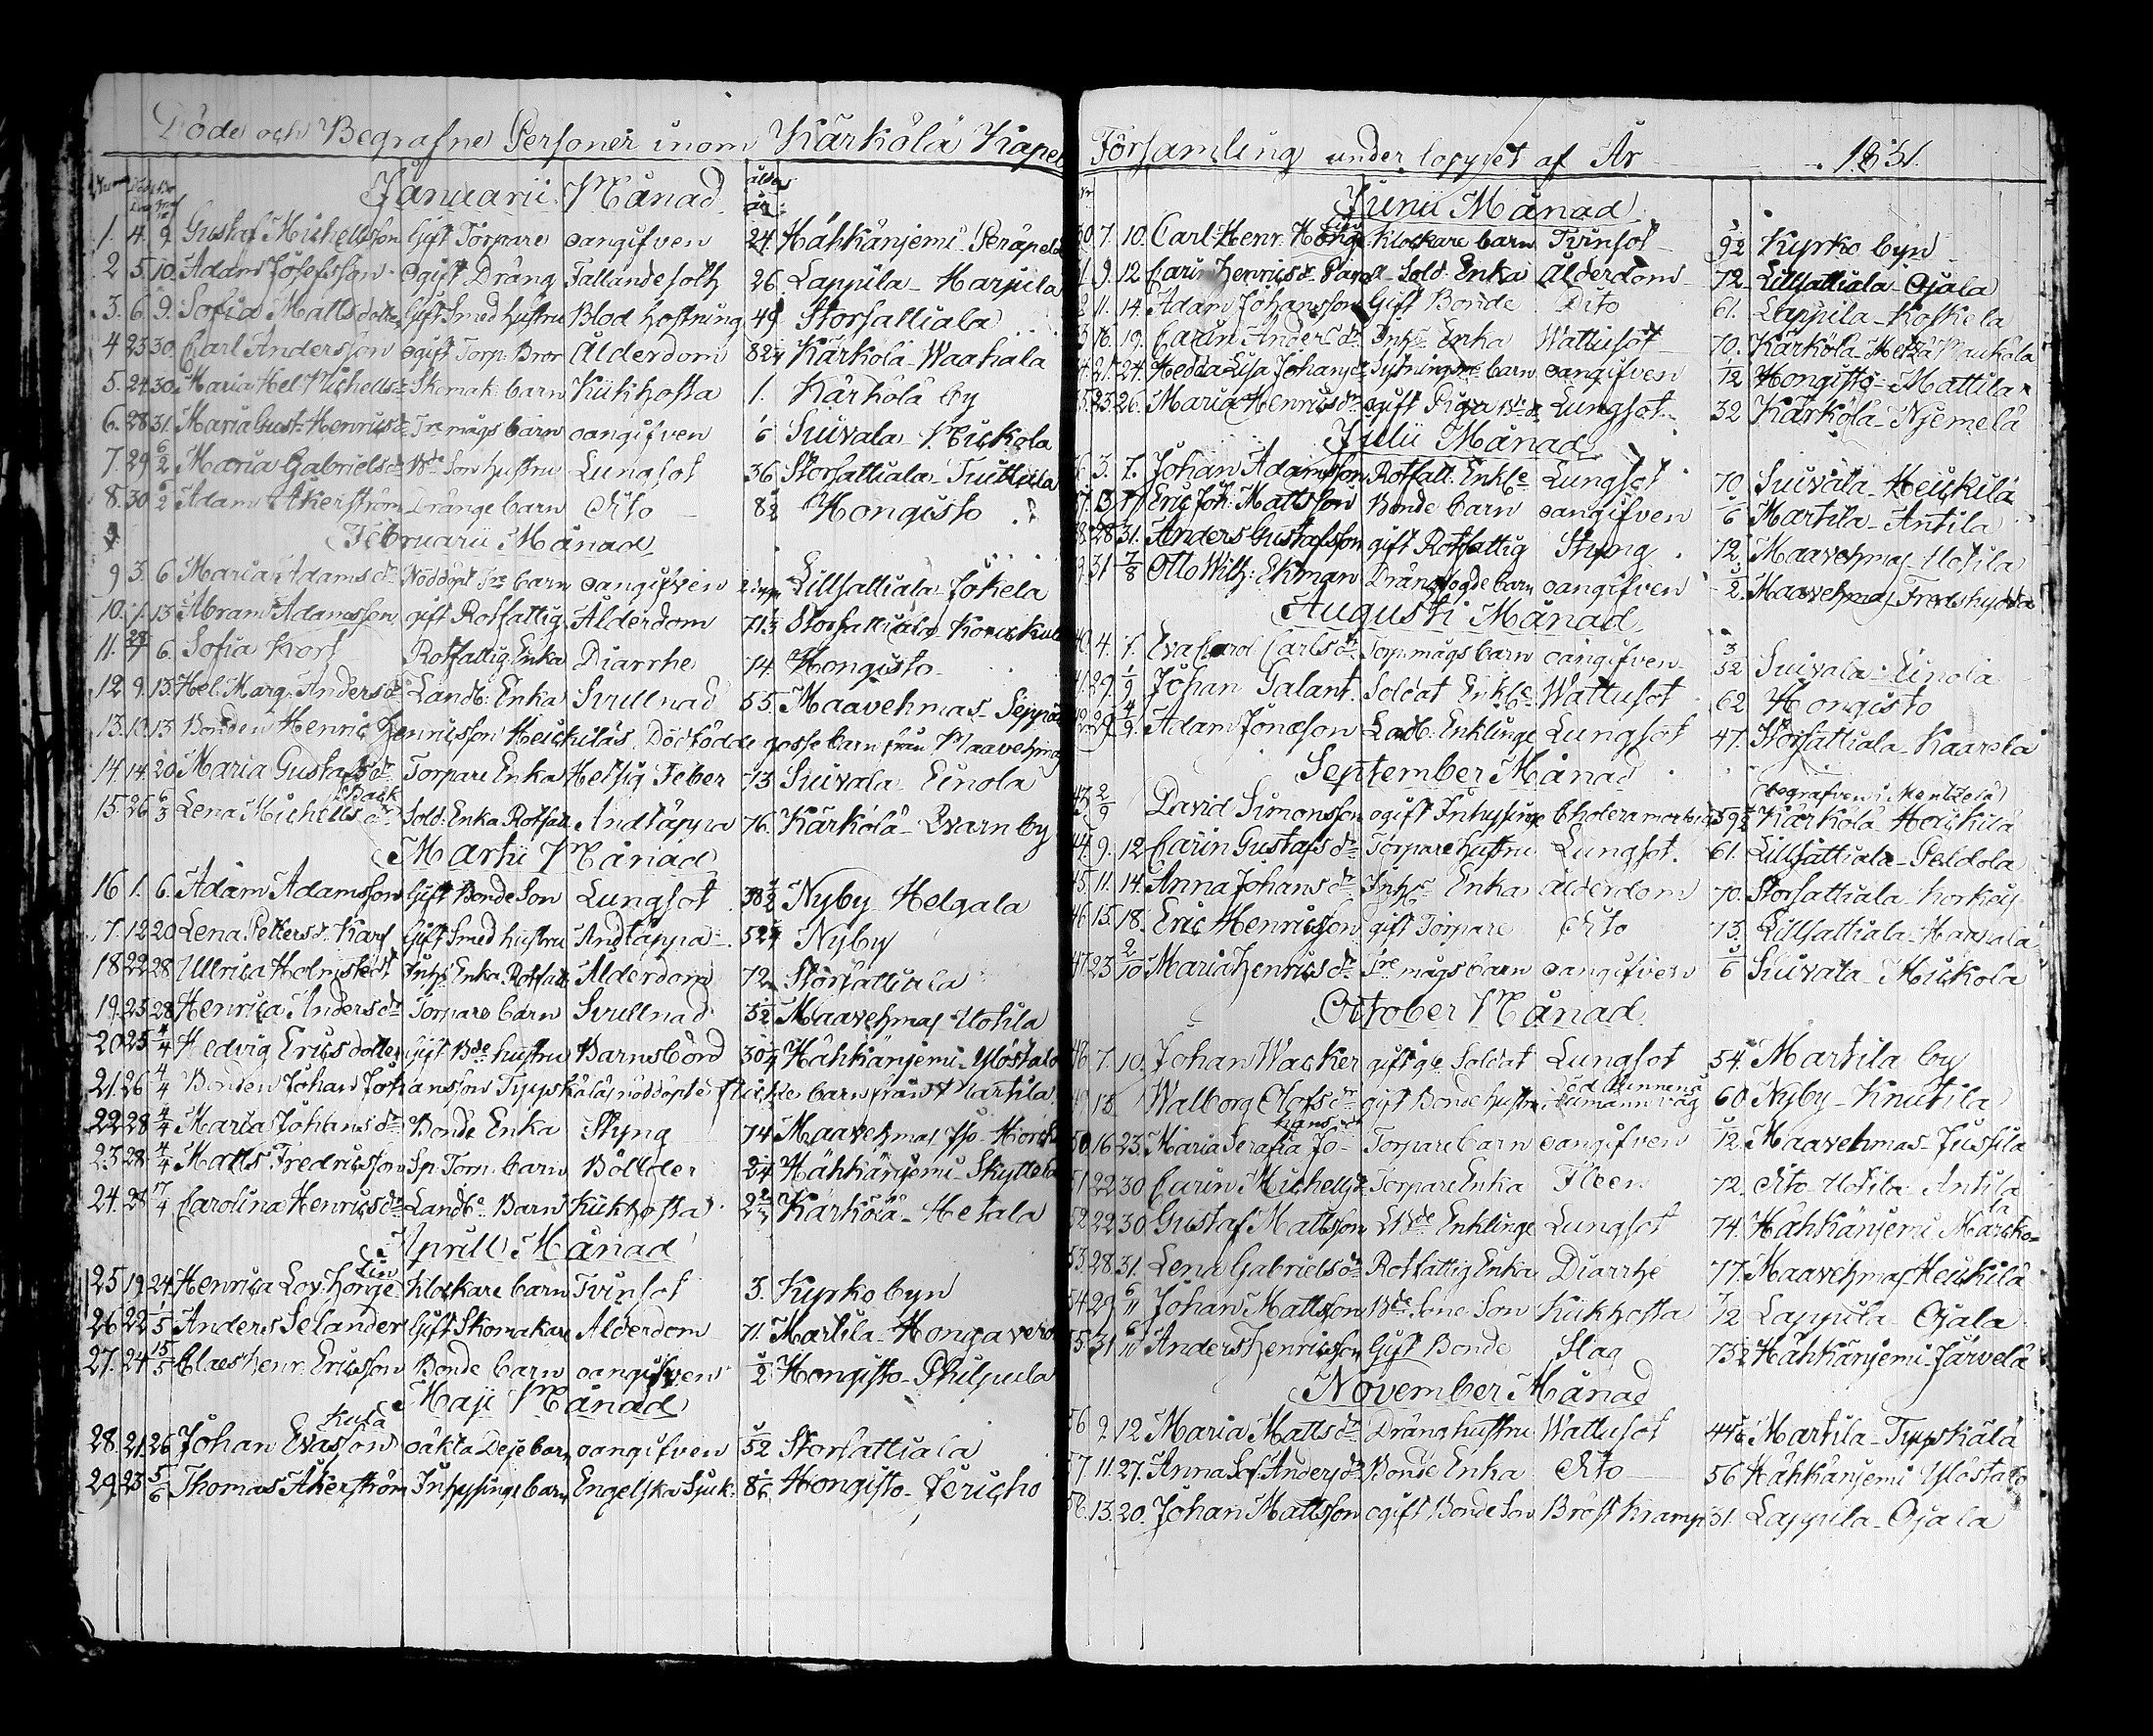 Döde och Begrafne Personer inom Kärkölä Kapel
Januarii Månad
1. 4. 9. Gustaf Michellsson Gift Torpare oangifven 24. Hähkänjemi Peräpeld
2 5. 10. Adam Josefsson ogift Dräng Fallandesoth 26. Lappila Harjula
3. 6. 9. Sofia Mattsdotter Gift Smed hustru Blod hostning 49 Storsattiala
4 23 30. Carl Andersson ogift Torp. Bror Ålderdom 82 Kärkölä Waahala
5. 24 30. Maria Hel. Michellsdr Skomak. barn Kükhosta 1. Kärkölä by
6. 28 31. Maria Gust. Henricsdr Tre mågs barn oangifven 1/6 Suivala Mickola
7. 29 6/2 Maria Gabrielsdr Bde Son hustru Lungsot 36 Storsattiala Tuttula
8. 30 6/2 Adam Åkerström Dränge barn Dito 8/2 Hongisto
Februarii Månad
9 3. 6 Maria Adamsdr Nöddöpt Tre barn oangifven Lillsattiala Jokela
10. 7. 13 Abram Adamsson gift Rotfattig Ålderdom 71 Storsattiala
11. 6. Sofia Korf Rotfattig Enka Diarrhe 74. Hongisto
12 9. 13. Hel. Marg. Andersdr Landb. Enka Svullnad 55. Maavehmas Seppä
13. 10. 13 Bonden Henric Henricsson Heickiläs Dödfödde gosse barn från Maavehmaj
14 14. 20 Maria Gustafsdr Torpare Enka Hetsig Feber 73 Suivala Einola
Back
15. 26 6/3 Lena Michellsdr Sold. Enka Rotfatt. Andtäppa 76. Kärkölä Qvarnby
Martii Månad
16 1. 6. Adam Adamsson Gift Bonde Son Lungsot 38 Nyby Helgala
17. 12 20 Lena Pettersdr Karf Gift Smed hustru Andtäppa 52 Nyby
18 22 28 Ullrica Holmstedt Inhs Enka Rotfatt. Ålderdom 72 Storsattiala
19. 23 28 Henrica Andersdr Torpare barn Svullnad Maavehmas Uotila
20 25 4/4 Hedvig Ericsdotter Gift Bde hustru Barnsbörd 30 Hähkänjemi Ylöstalo
21. 26 4/4 Bonden Johan Johansson Typpskäläs nöddöpte flicke barn från Martila
22 28 4/4 Maria Johansdr Bonde Enka Styng 74 Maavehmas
23. 28. 4/4 Matts Fredricsson Sp. Torp. barn Bölder Hähkänjemi Skyttela
24. 28 17/4 Carolina Henricsdr Landb. Barn Kikhosta Kärkölä Hetala
Aprill Månad
Lin
25 19. 24 Henrica Lov. Honge Klockare barn Tvinsot 3. Kyrko byn
26 22 1/5 Anders Selander Gift Skomakare Ålderdom 71. Martila Hongavero
27. 24 15/5 Claes Henr. Ericsson Bonde barn oangifven 1/2 Hongisto Philpula
Maji Månad
28. 21. 26 Johan Evasson oäkta Deje barn oangifven 5/52 Storsattiala
29. 23 5/6 Thomas Åkerström Inhysinge barn Engelska Sjuk. Hongisto Jericho
Församling under loppet af År 1831.
Junii Månad
30 7. 10. Carl Henr. Honge Klockare barn Tvinsot 9/12 Kyrko byn
31 9. 12 Carin Henricsdr Sold. Enka Ålderdom 72 Lillsattiala Ojala
32 11. 14. Adam Johansson Gift Bonde Dito 61. Lappila Koskela
33 16. 19. Carin Andersdr Inhs Enka Wattusot 70. Kärkölä
34 21. 24. Hedda Lisa Johansdr Sytningsme barn oangifven /12 Hongisto Mattila
35. 23. 26. Maria Henricsdr ogift Piga Lungsot 32 Kärkölä Njemelä
Julii Månad
36 3. 7. Johan Adamsson Rotfatt. Enkle Lungsot 70 Suivala Heickilä
37. 13 17 Eric Joh. Mattsson Bonde barn oangifven 5/6 Martila Antila
38. 28 31. Anders Gustafsson gift Rotfattig Styng 72. Maavehmaj Uotila
39. 31 7/8 Otto Wilh: Ekman Drängfogde barn oangifven 2. Maavehmaj Fredshydda
Augusti Månad
40. 4. 7. Eva Carol Carlsdr Torp. mågs barn oangifven 3/52 Suivala Einola
41. 29. 1/9 Johan Galant. Soldat Enkle Wattusot 62 Hongisto
42. 29 4/9 Adam Jonasson Landb. Enklinge Lungsot 47. Storsattiala Kaarela
September Månad
begrafven i Mentzelä
43 2/9 David Simonsson ogift Inhysing Cholera morbus 59 Kärkölä Heickilä
44. 9. 12 Carin Gustafsdr Torpare hustru Lungsot. 61. Lillsattiala Peldola
45. 11. 14. Anna Johansdr Inhs Enka ålderdom 70. Storsattiala Korkoy
46 15. 18. Eric Henricsson gift Torpare Dito 73. Lillsattiala
47. 23 2/10 Maria Henricsdr Tre mågs barn oangifven 5/6 Suivala Mickola
October Månad
48 7. 10. Johan Wacker gift ge Soldat Lungsot 54. Martila by
Död funnen å
49 13. Walborg Olofsdr gift Bonde hustru allmänn väg 60 Nyby Knutila
hansdr
50. 16 23. Maria Serafia Jo- Torpare barn oangifven /12. Maavehmas Jussila
51 22 30 Carin Michellsdr Torpare Enka Fleen 72. Dito Uotila Antila
la
52 22 30 Gustaf Mattsson Enklinge Lungsot 74. Hähkänjemi Marcko-
53. 28. 31. Lena Gabrielsdr Rotfattig Enka Diarrhé 77. Maavehmaj Heickilä
54. 29 6/11 Johan Mattsson Bde Sons Son Kikhosta 7/12 Lappila Ojala
55. 31 6/11 Anders Henricsson Gift Bonde Slag 73 Hähkänjemi Järvelä
November Månad
56 9 12 Maria Mattsdr Dräng hustru Wattusot 44 Martila Typpskälä
57 11. 27. Anna Sof. Andersdr Bonde Enka Dito 56 Hähkänjemi Ylöstalo
58. 13. 20. Johan Mattsson ogift Bonde Son Bröst Kramp 31. Lappila Ojala